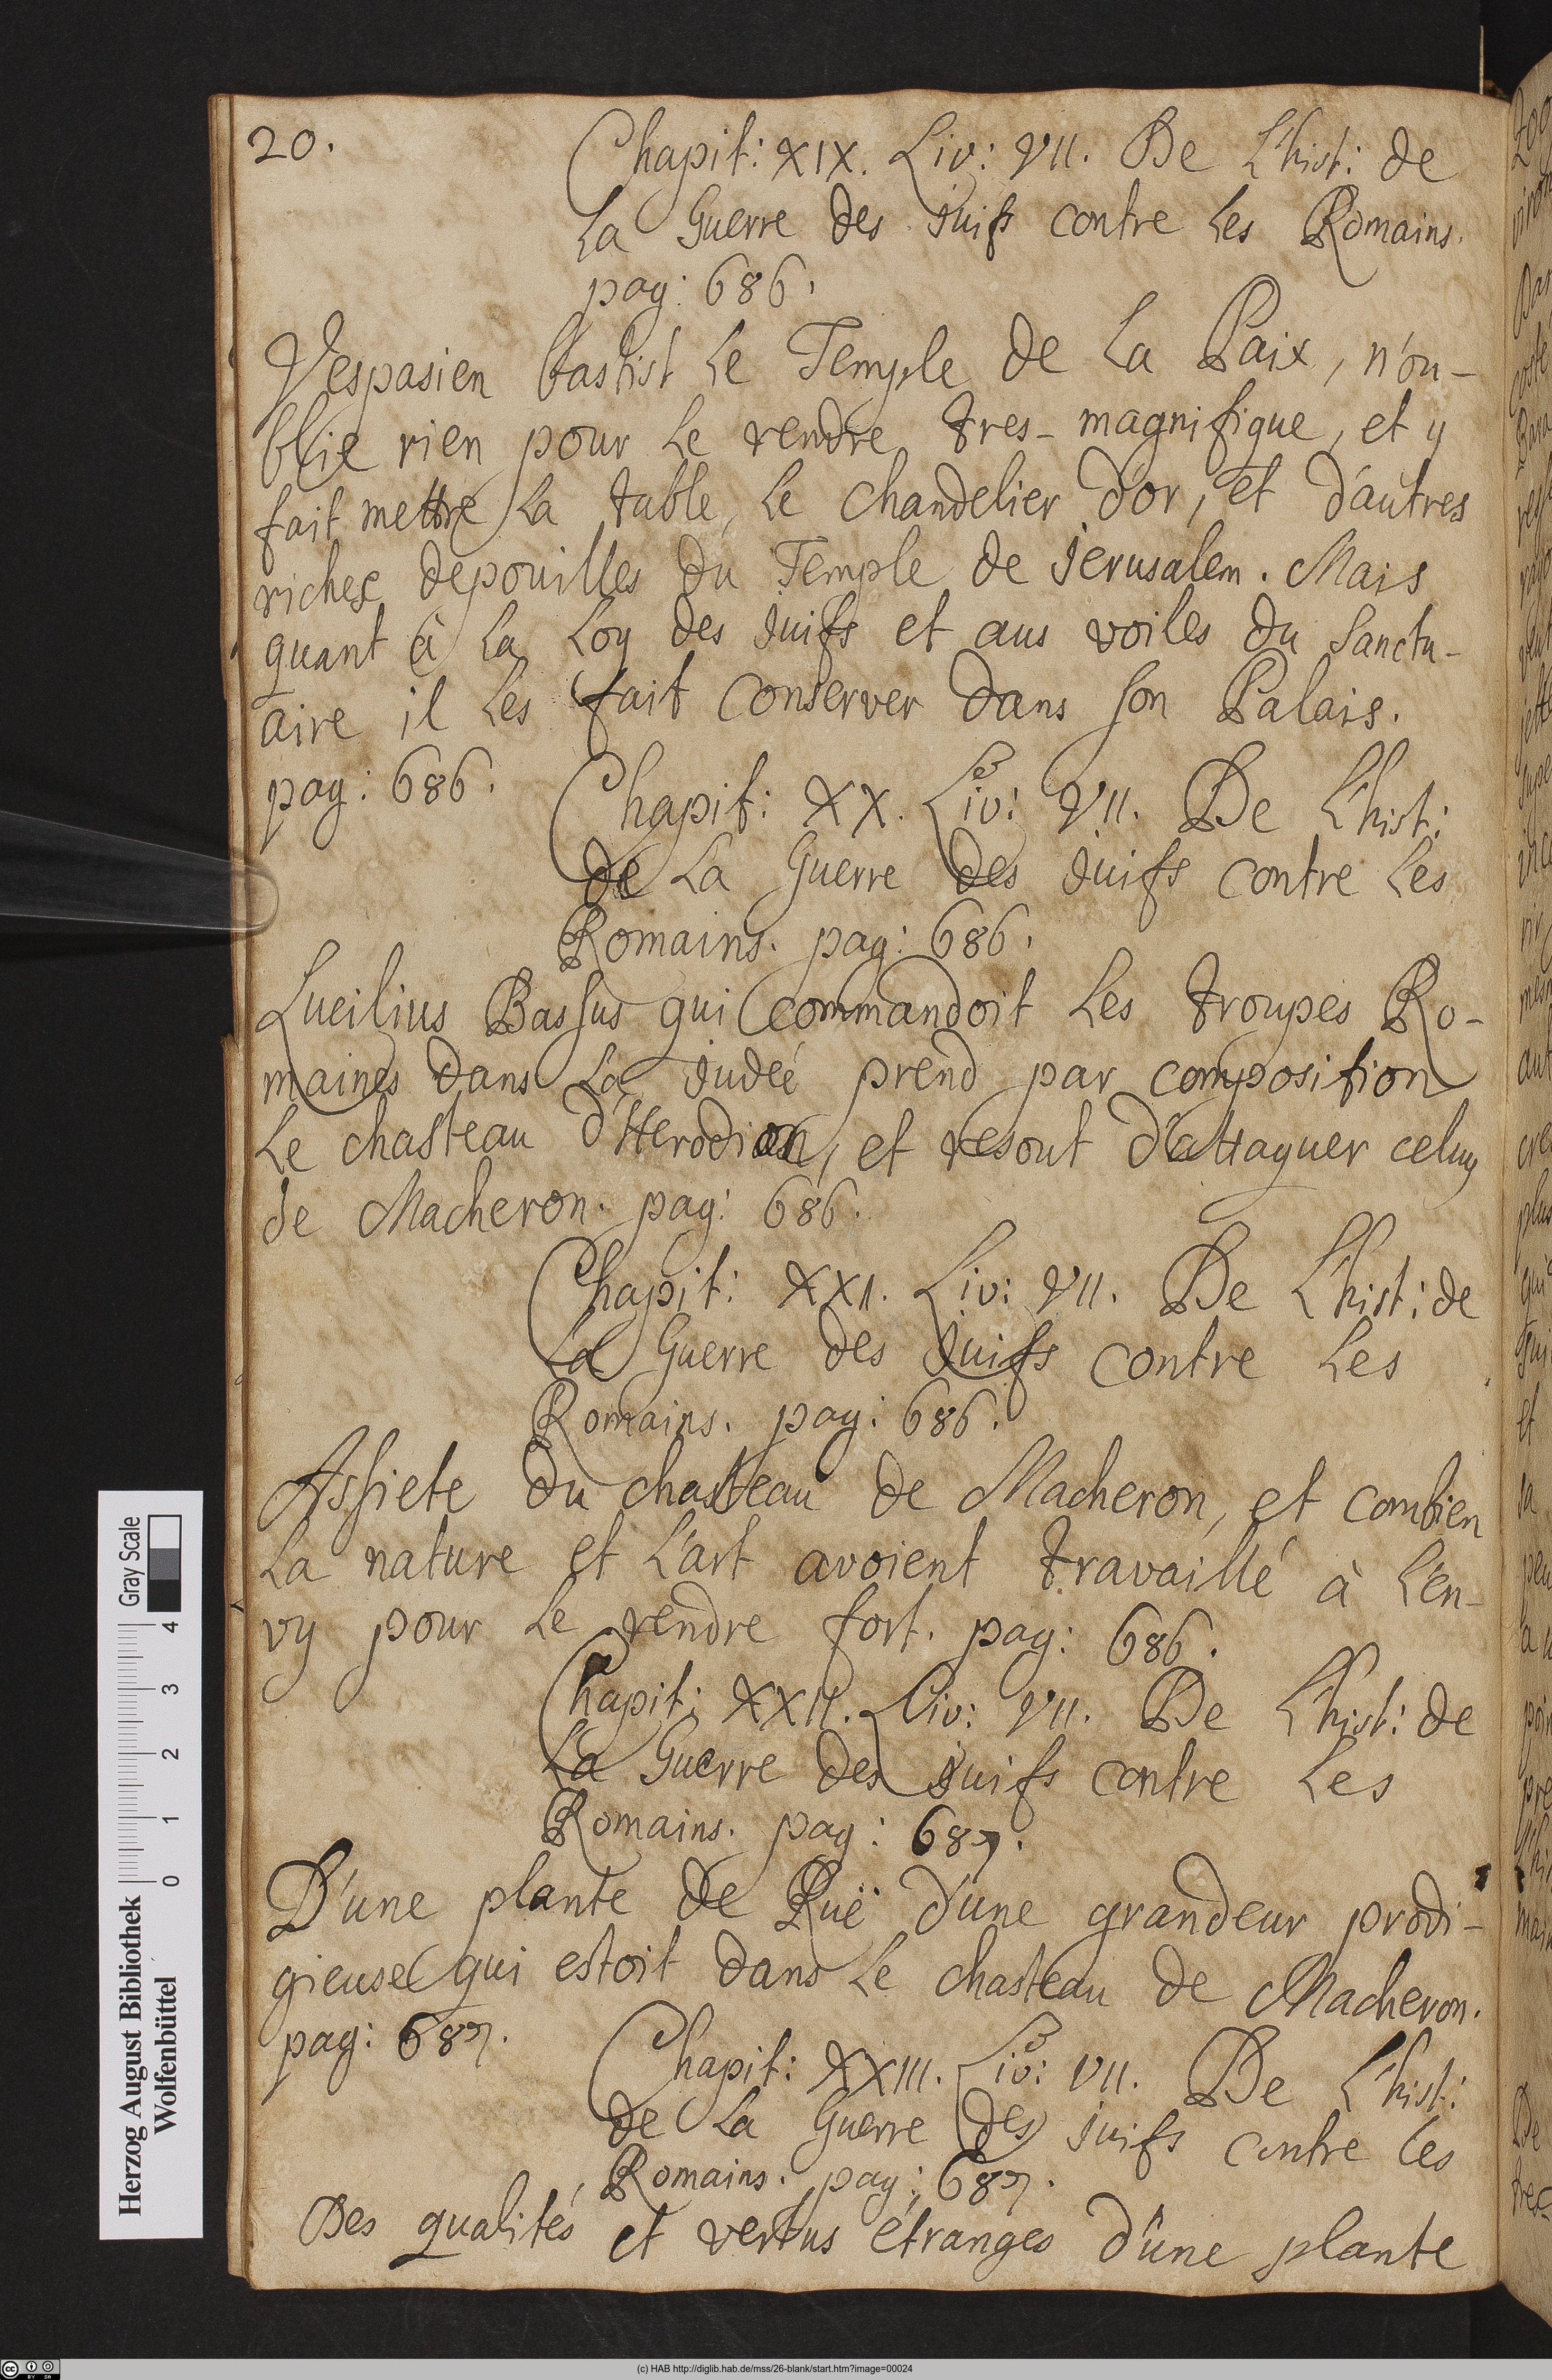 20.
Chapit: XIX. Liv: VII. De L'hist: de
La Guerre des juifs contre Les Romains.
pag: 686.
Vespasien bastist Le Temple de La Paix, n'ou-
blie rien pour Le rendre tres-magnifique, et y
fait mettre La table, Le chandelier d'or, et d'autres
riches depouilles du Temple de jerusalem. Mais
quant à La Loy des juifs et aus voiles du Sanctu-
aire il Les fait conserver dans son Palais.
pag: 686.
Chapit: XX. Liv: VII. De L'hist:
de La Guerre des juifs contre Les
Romains. pag: 686.
Lucilius Bassus qui commandoit Les troupes Ro-
maines dans La judeé prend par composition
Le chasteau d'Herodion, et resout d'attaquer celuy
de Macheron. pag: 686.
Chapit: XXI. Liv: VII. De L'hist: de
La Guerre des juifs contre Les
Romains. pag: 686.
Assiete du chasteau de Macheron, et combien
La nature et L'art avoient travaillé à L'en-
vy pour Le rendre fort. pag: 686.
Chapit: XXII. Liv: VII. De L'hist: de
La Guerre des juifs contre Les
Romains. pag: 687.
D'une plante de Ruë d'une grandeur prodi-
gieuse qui estoit dans Le chasteau de Macheron.
pag: 687.
Chapit: XXIII. Liv: VII. De L'hist:
de La Guerre des juifs contre Les
Romains. pag: 687.
Des qualités et vertus étranges d'une plante
Gray Scale
4 3 2 1 0
Herzog August Bibliothek
Wolfenbüttel
(c) HAB http://diglib.hab.de/mss/26-blank/start.htm?image=00024